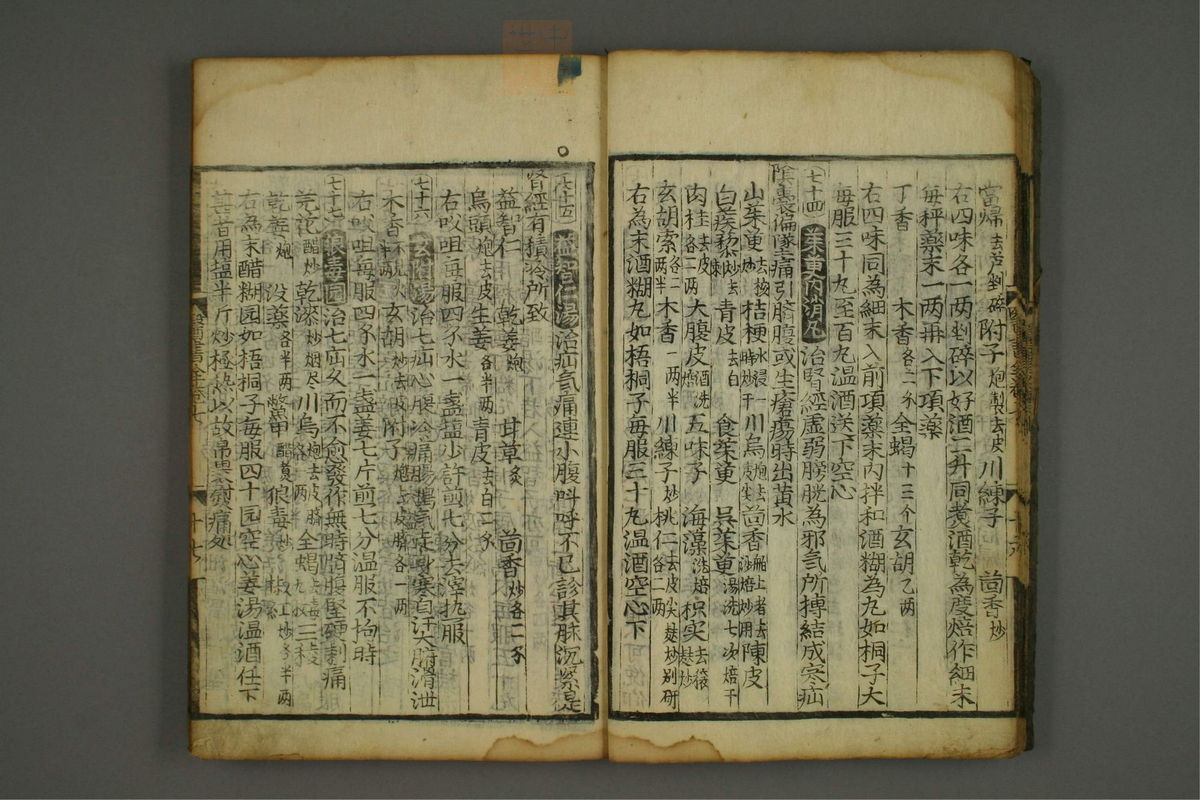 當歸去芦剉碎附子炮製去皮川練子茴香炒
右四味各一兩剉碎以好酒二升同煮酒乾為度焙作細末
每秤藥末一兩再入下項藥
丁香木香各二分全蝎十三个玄胡乙兩
右四味同為細末入前項藥末內拌和酒糊為丸如桐子大
每服三十丸至百丸温酒送下空心
七十四茱萸內消丸治腎經虛弱膀胱為邪氣所搏結成寒疝
陰囊偏墜痛引臍腹或生瘡瘍時出黄水
山茱萸去核炒桔梗水浸一時炒干川烏炮去皮尖茴香舶上者去沙焙炒用陳皮
白蒺藜炒去刺青皮去白食茱萸吳茱萸湯洗七次焙干
肉桂去皮各二兩大腹皮酒洗焙五味子海藻洗焙枳实去穰麩炒
玄胡索各二兩半木香一兩半川練子炒桃仁去皮尖麸炒别研各二兩
右為末酒糊丸如梧桐子每服三十丸温酒空心下
七十五益智仁湯治疝氣痛連小腹呌呼不已診其脉沉緊是
腎經有積冷所致
益智仁乾姜炮甘草炙茴香炒各二分
烏頭炮去皮生姜各半兩青皮去白二分
右㕮咀每服四分水一盏盐少許煎七分去滓热服
七十六玄附湯治七疝心腹冷痛腸鳴氣走身寒自汗大腑滑泄
木香不見火半兩玄胡炒去皮附子炮去皮臍各一兩
右㕮咀每服四分水一盏姜七片煎七分温服不拘時
七十七狼毒园治七疝久而不愈發作無時臍腹堅硬刺痛
芫花醋炒乾漆炒烟尽川烏炮去皮臍全蝎去毒三稜
乾姜炮没藥各半兩鱉甲醋煑狼毒炒
右為末醋糊园如梧桐子每服四十园空心姜湯温酒任下
甚者用盐半斤炒極热以故帛畏熨痛处